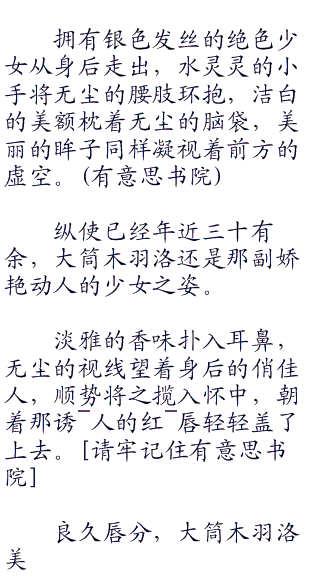 拥有银色发丝的绝色少
女从身后走出，水灵灵的小
手将无尘的腰肢环抱，洁白
的美额枕着无尘的脑袋，美
丽的眸子同样凝视着前方的
虚空。(有意思书院)
纵使已经年近三十有
余，大筒木羽洛还是那副娇
艳动人的少女之姿。
淡雅的香味扑入耳鼻，
无尘的视线望着身后的俏佳
人，顺势将之揽入怀中，朝
着那诱¯人的红¯唇轻轻盖了
上去。[请牢记住有意思书
院]
良久唇分，大筒木羽洛
美